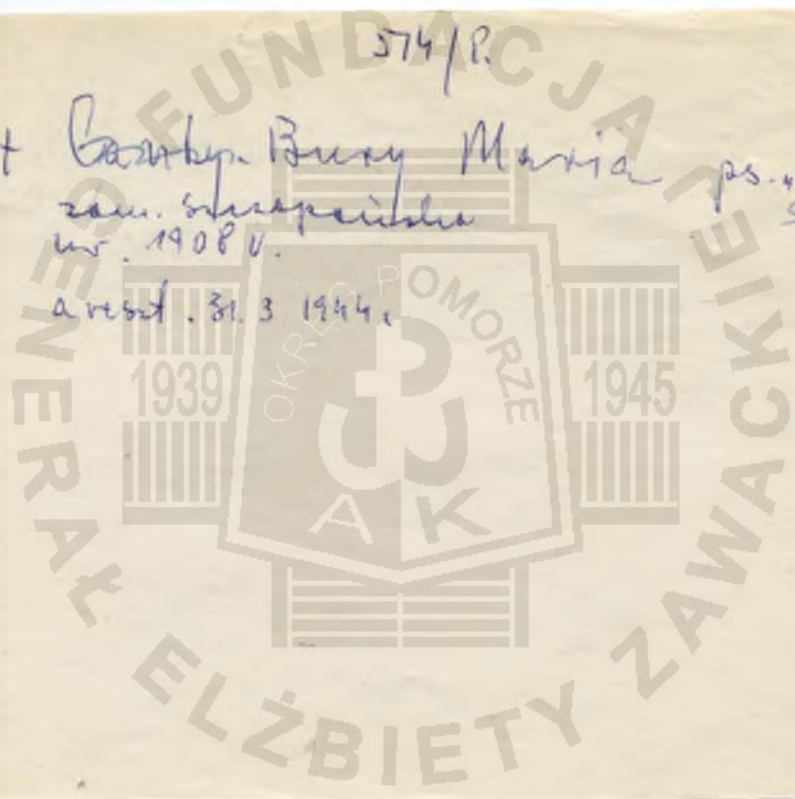 574/P.
+ Bury Maria ps. "
zam. Szczepańska
ur. 1908 r.
areszt. 31. 3 1944.
FUNDACJA
GENERAŁ ELŻBIETY ZAWACKIEJ
OKRĘG POMORZE
1939
1945
A K